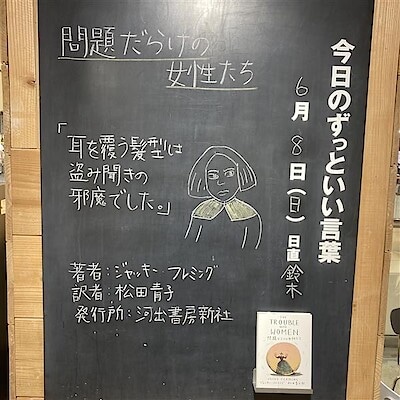 今日のずっといい言葉
6月8日(日)日直 鈴木
問題だらけの
女性たち
「耳を覆う髪型は
盗み聞きの
邪魔でした。」
著者:ジャッキー フレミング
訳者:松田青子
発行所:河出書房新社
TROUBLE
WOMEN
問題だらけの女性たち